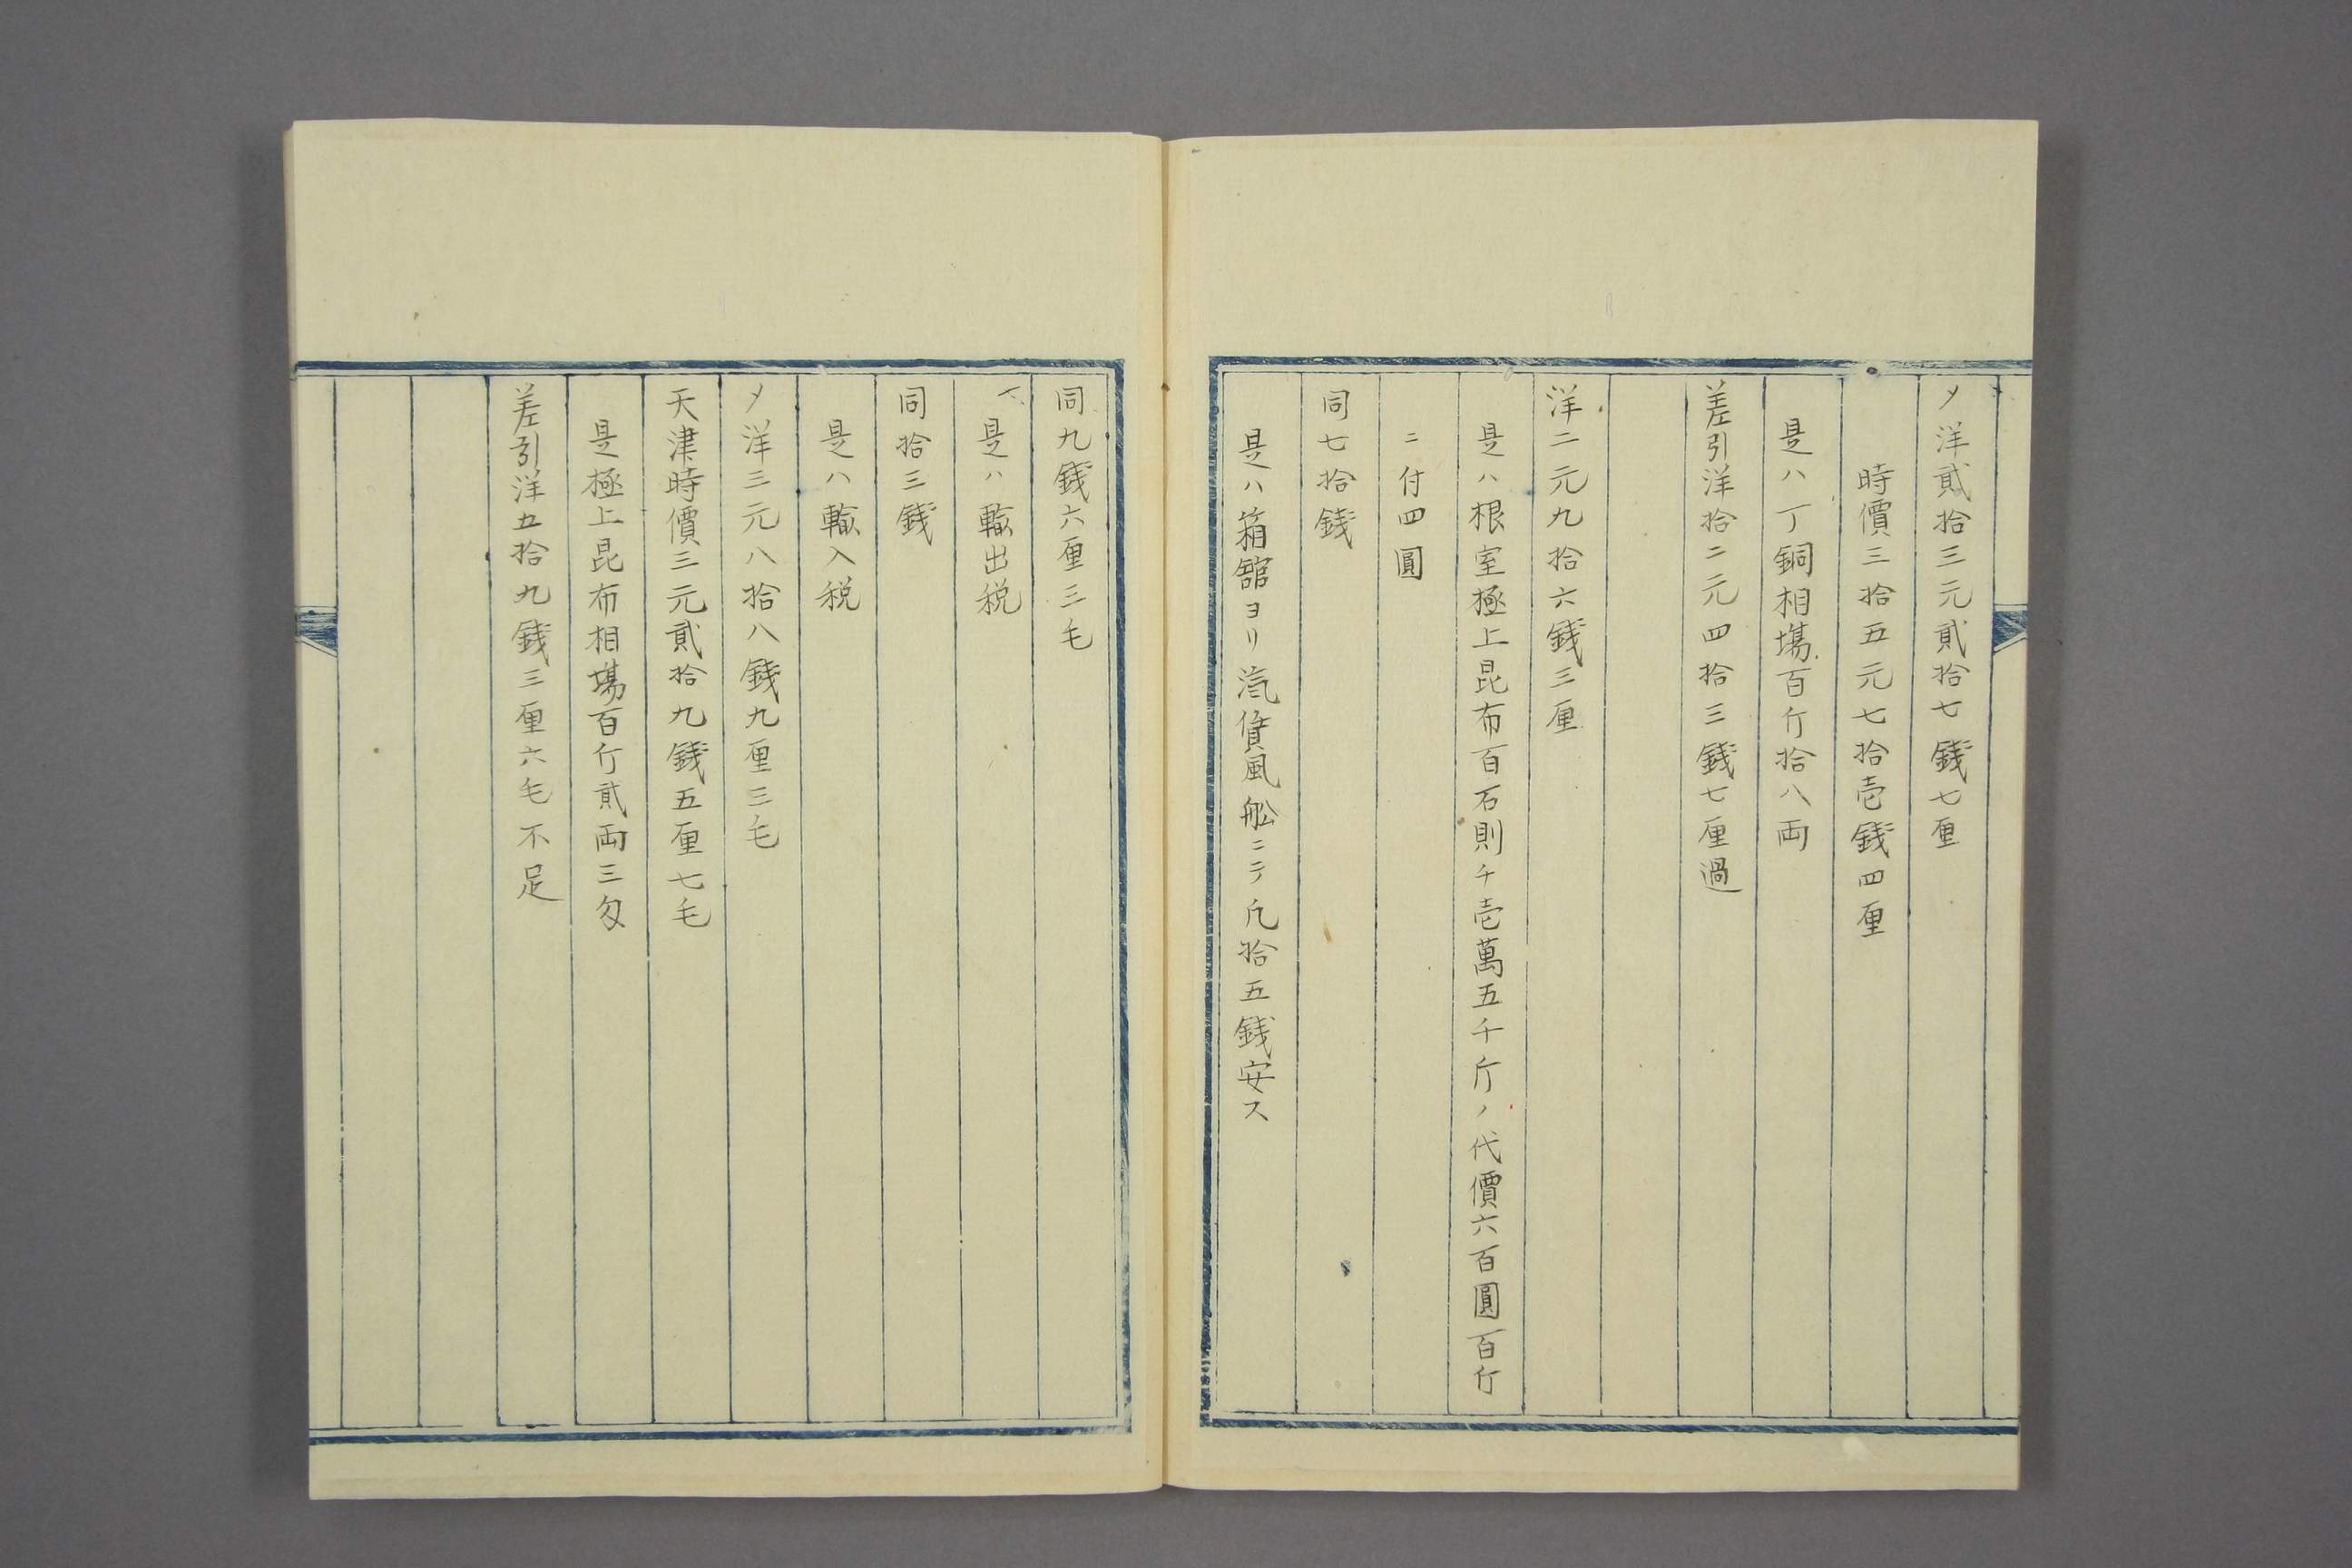 〆洋貮拾三元貮拾七錢七厘
時價三拾五元七拾壱錢四厘
是ハ丁銅相塲百斤拾八両
差引洋拾二元四拾三錢七厘過
洋二元九拾六錢三厘
是ハ根室極上昆布百石則チ壱萬五千斤ノ代價六百圓百斤
ニ付四圓
同七拾錢
是ハ箱舘ヨリ汽賃風舩ニテ凡拾五錢安ス
同九錢六厘三毛
是ハ輸出税
同拾三錢
是ハ輸入税
〆洋三元八拾八錢九厘三毛
天津時價三元貮拾九錢五厘七毛
是極上昆布相塲百斤貮両三匁
差引洋五拾九錢三厘六毛不足